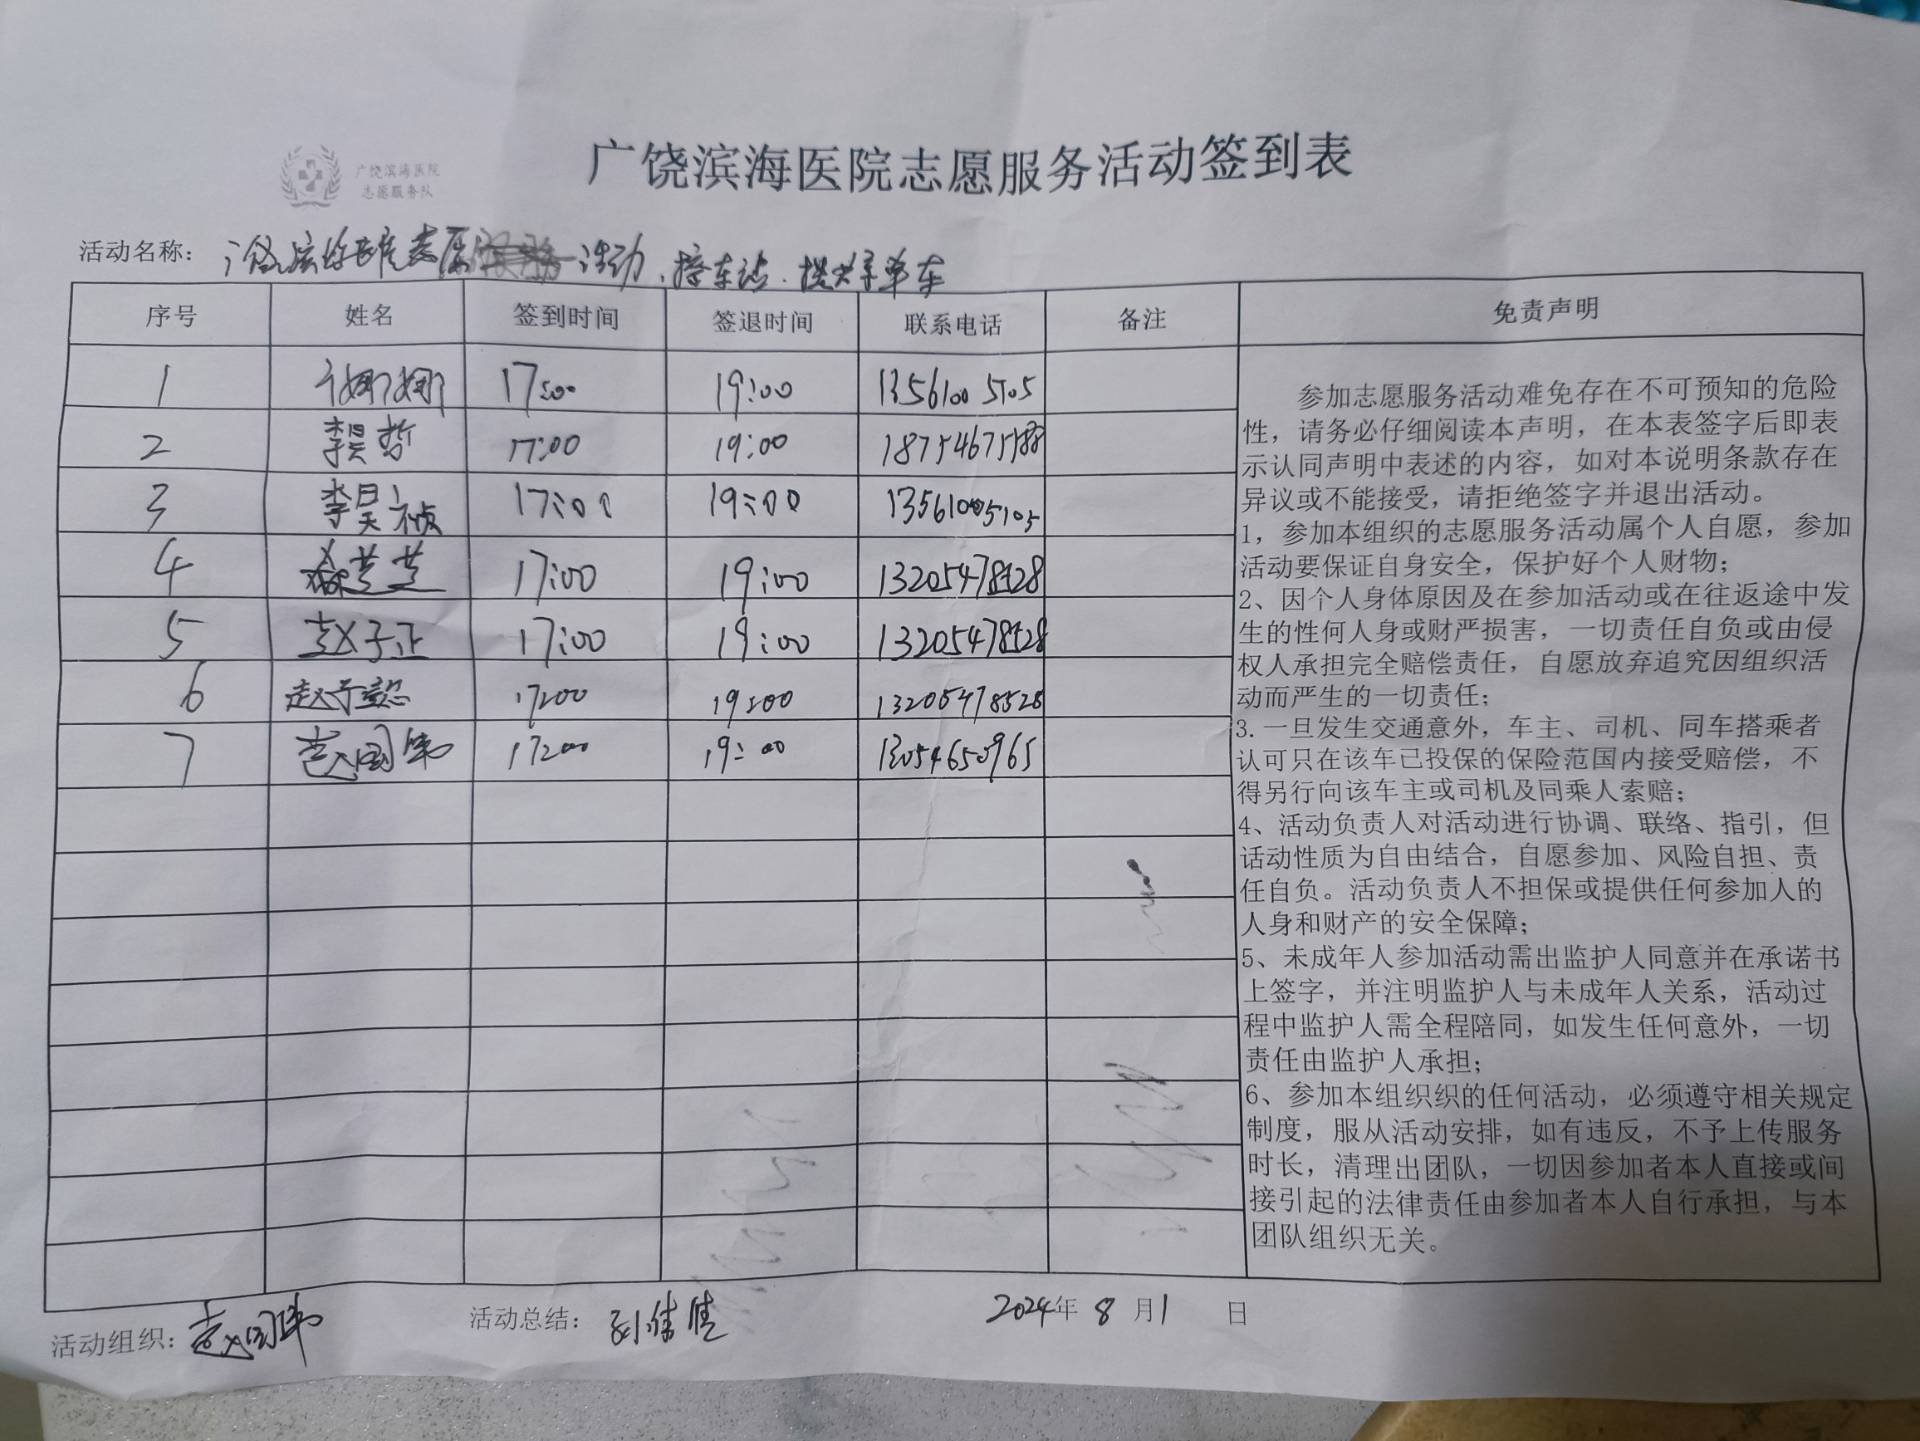 广饶滨海医院
志愿服务队
广饶滨海医院志愿服务活动签到表
活动名称： 志愿 活动、擦车站、摆共享单车
序号 姓名 签到时间 签退时间 联系电话 备注 免责声明
1 娜娜 17:00 19:00 13561005105
2 李昊哲 17:00 19:00 18754675788
3 李昊祯 17:00 19:00 13561005105
4 芝芝 17:00 19:00 13205478528
5 赵子正 17:00 19:00 13205478528
6 赵子懿 17:00 19:00 13205478528
7 赵国伟 17:00 19:00 13054650965
参加志愿服务活动难免存在不可预知的危险
性，请务必仔细阅读本声明，在本表签字后即表
示认同声明中表述的内容，如对本说明条款存在
异议或不能接受，请拒绝签字并退出活动。
1，参加本组织的志愿服务活动属个人自愿，参加
活动要保证自身安全，保护好个人财物；
2、因个人身体原因及在参加活动或在往返途中发
生的性何人身或财严损害，一切责任自负或由侵
权人承担完全赔偿责任，自愿放弃追究因组织活
动而严生的一切责任；
3.一旦发生交通意外，车主、司机、同车搭乘者
认可只在该车己投保的保险范围内接受赔偿，不
得另行向该车主或司机及同乘人索赔；
4、活动负责人对活动进行协调、联络、指引，但
话动性质为自由结合，自愿参加、风险自担、责
任自负。活动负责人不担保或提供任何参加人的
人身和财产的安全保障；
5、未成年人参加活动需出监护人同意并在承诺书
上签字，并注明监护人与未成年人关系，活动过
程中监护人需全程陪同，如发生任何意外，一切
责任由监护人承担；
6、参加本组织织的任何活动，必须遵守相关规定
制度，服从活动安排，如有违反，不予上传服务
时长，清理出团队，一切因参加者本人直接或间
接引起的法律责任由参加者本人自行承担，与本
团队组织无关。
活动组织：赵国伟 活动总结： 2024年 8 月1 日